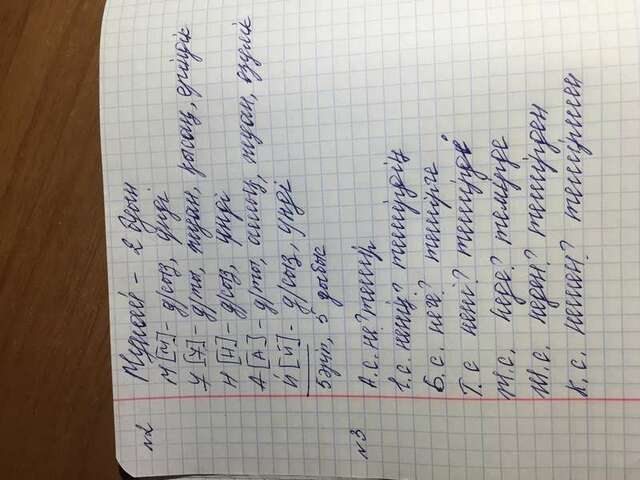 №2 Мұнай – 2 буын
М [М] – д/сыз, үнді
Ұ [Ұ] – д/ты, жуан, қысаң, еріндік
Н [Н] – д/сыз, үнді
А [А] – д/ты, ашық, жуан, езулік
Й [Й] – д/сыз, үнді
5 әріп, 5 дыбыс
№3 А.с. не? темір
І.с. ненің? темірдің
Б.с. неге? темірге
Т.с нені? темірді
Ж.с. неде? темірде
Ш.с. неден? темірден
К.с. немен? темірмен